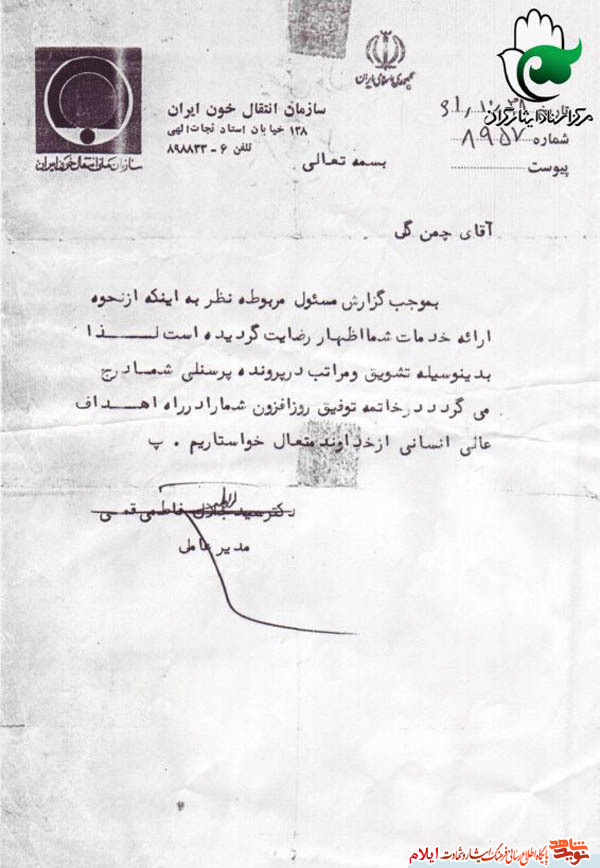 جمهوری اسلامی ایران
سازمان انتقال خون ایران
۱۳۸ خیابان استاد نجات‌الهی
تلفن ۶ - ۸۹۸۸۳۳
تاریخ
شماره ۸۹۵۷
پیوست
بسمه تعالی
آقای چمن گلی
بموجب گزارش مسئول مربوطه نظر به اینکه ازنحوه
ارائه خدمات شما اظهار رضایت گردیده است لـــذا
بدینوسیله تشویق ومراتب درپرونده پرسنلی شمادرج
می گردد درخاتمه توفیق روزافزون شمارادرراه اهــداف
عالی انسانی ازخداوند متعال خواستاریم . پ
دکترسید جلال فاطمی قمی
مدیرعامل
نوید شاهد پایگاه اطلاع رسانی فرهنگ ایثار و شهادت ایلام